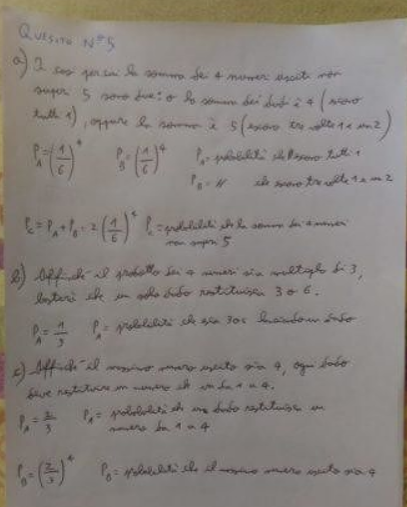 QUESITO N°5
a) I casi per cui la somma dei 4 numeri usciti non
superi 5 sono due: o la somma dei dadi è 4 (escono
tutti 1), oppure la somma è 5 (escono tre volte 1 e un 2)
P_A = (1/6)^4 P_B = (1/6)^4 P_A = probabilità che escono tutti 1
P_B = // che escono tre volte 1 e un 2
P_C = P_A + P_B = 2 (1/6)^4 P_C = probabilità che la somma dei 4 numeri
non superi 5
b) Affinché il prodotto dei 4 numeri sia multiplo di 3,
basterà che un solo dado restituisca 3 o 6.
P_A = 1/3 P_A = probabilità che sia 3 o 6 lanciando un dado
c) Affinché il massimo numero uscito sia 4, ogni dado
deve restituire un numero che va da 1 a 4.
P_A = 2/3 P_A = probabilità che un dado restituisca un
numero da 1 a 4
P_B = (2/3)^4 P_B = probabilità che il massimo numero uscito sia 4